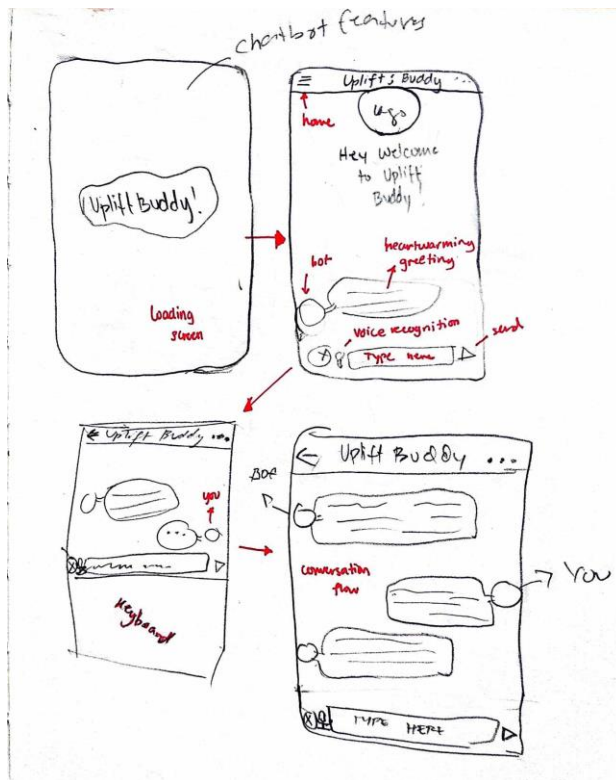 chatbot features
Uplift Buddy!
Loading
screen
Uplifts Buddy ...
home
Logo
Hey Welcome
to Uplift
Buddy!
heartwarming
greeting
bot
voice recognition
send
Type here
Uplift Buddy ...
you
Keyboard
Uplift Buddy ...
BOT
conversation
flow
You
TYPE HERE